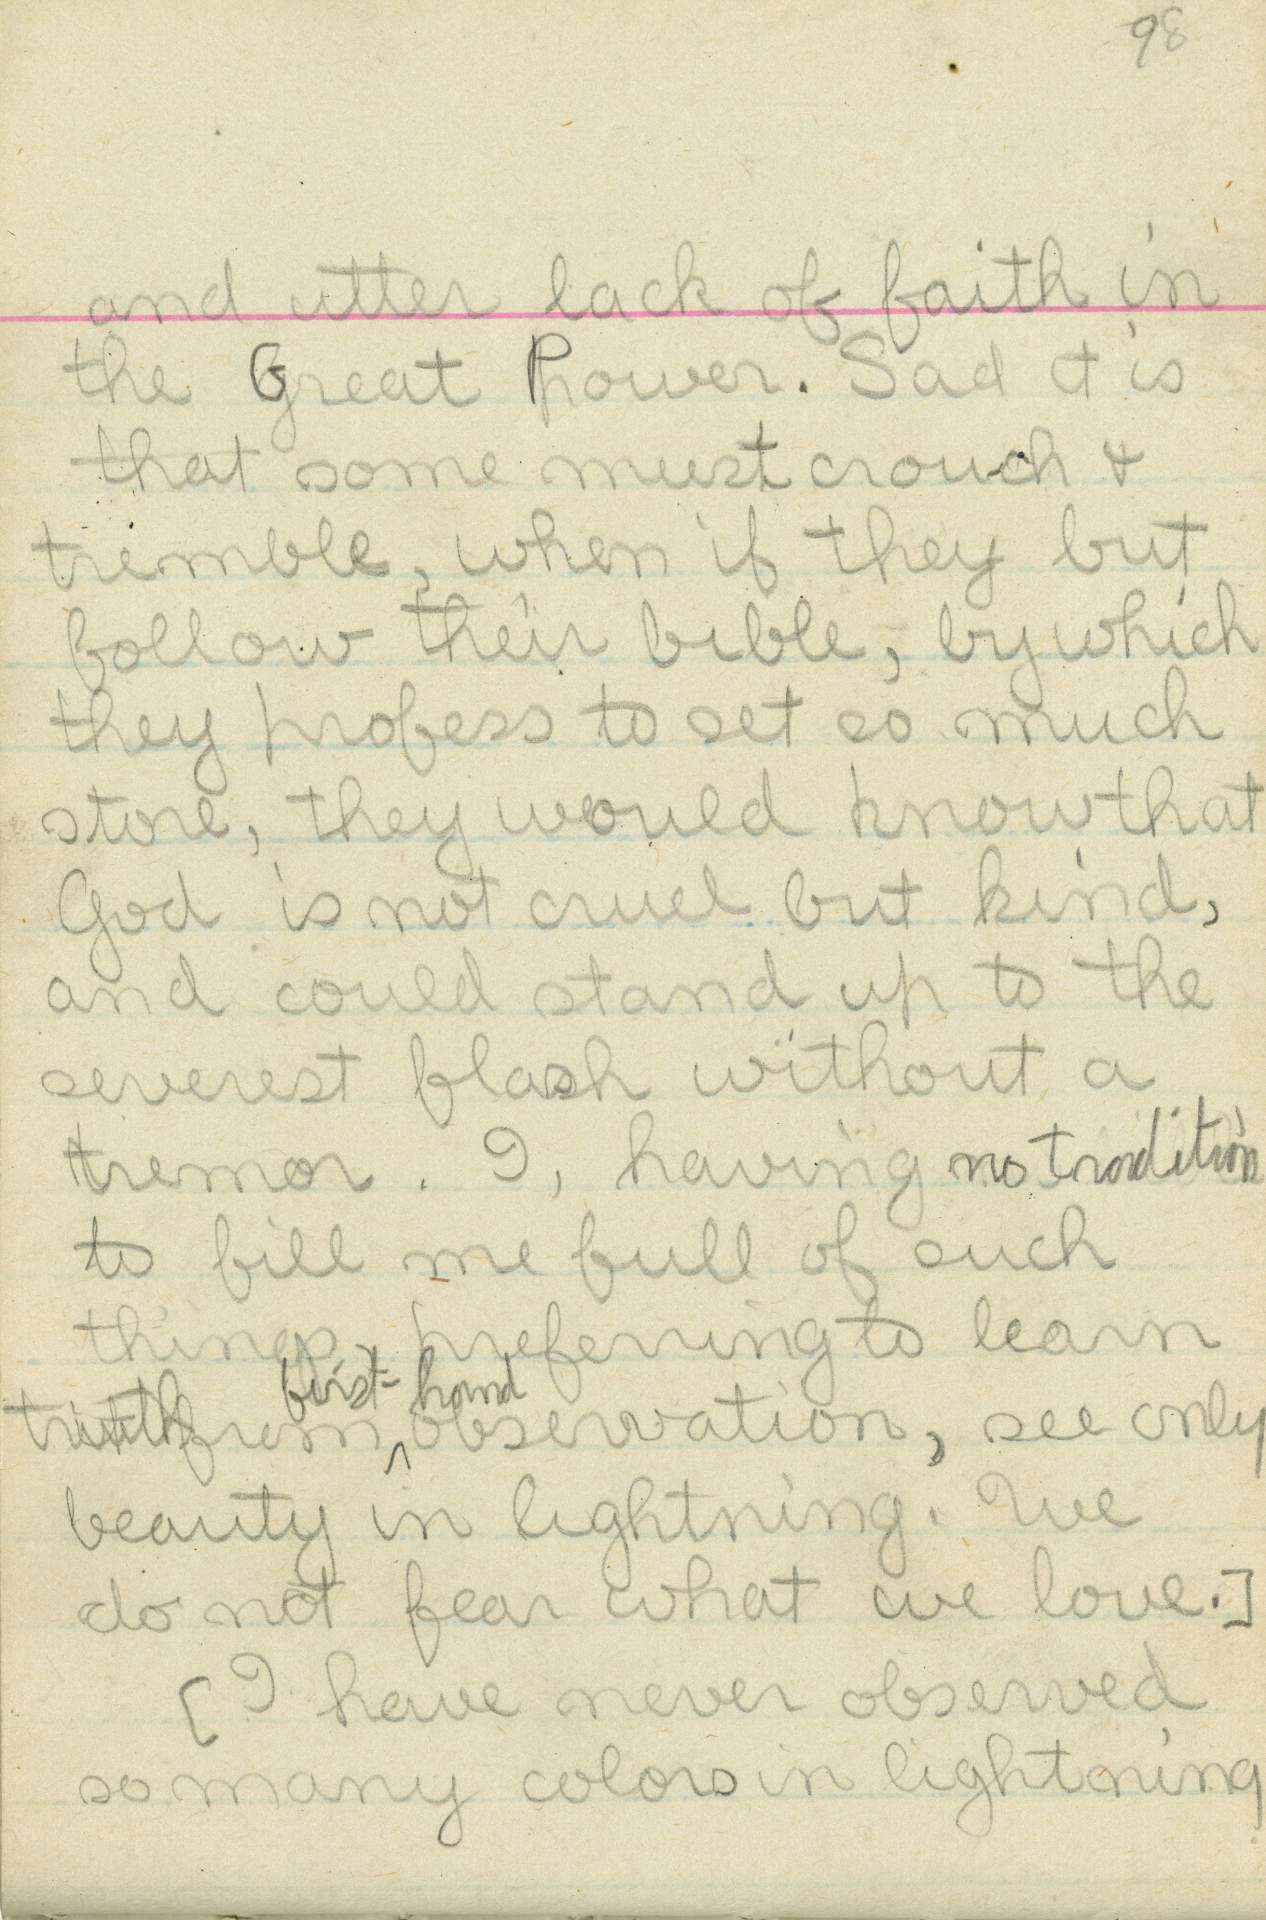 98
and utter lack of faith in
the Great Power. Sad it is
that some must crouch &
tremble, when if they but
follow their bible, by which
they profess to set so much
store, they would know that
God is not cruel but kind,
and could stand up to the
severest flash without a
tremor. I, having no tradition
to fill me full of such
things, preferring to learn
first-hand
truth from ^ observation, see only
beauty in lightning. We
do not fear what we love.]
[I have never observed
so many colors in lightning